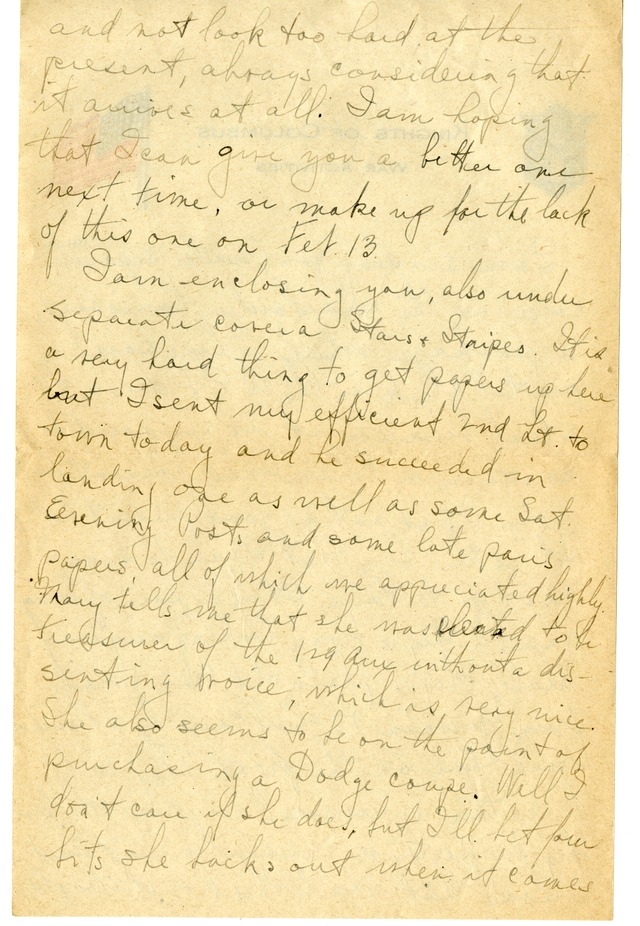 and not look too hard at the
present, always considering that
it arrives at all. I am hoping
that I can give you a better one
next time, or make up for the lack
of this one on Feb. 13.
I am enclosing you, also under
separate cover a Stars & Stripes. It is
a very hard thing to get papers up here
but I sent my efficient 2nd Lt. to
town today and he succeeded in
landing one as well as some Sat.
Evening Posts and some late paris
papers, all of which we appreciated highly.
Mary tells me that she was elected to be
treasurer of the 129 Aux without a dis-
senting voice, which is very nice.
She also seems to be on the point of
purchasing a Dodge coupe. Well I
don't care if she does, but I'll bet four
bits she backs out when it comes
KNIGHTS OF COLUMBUS